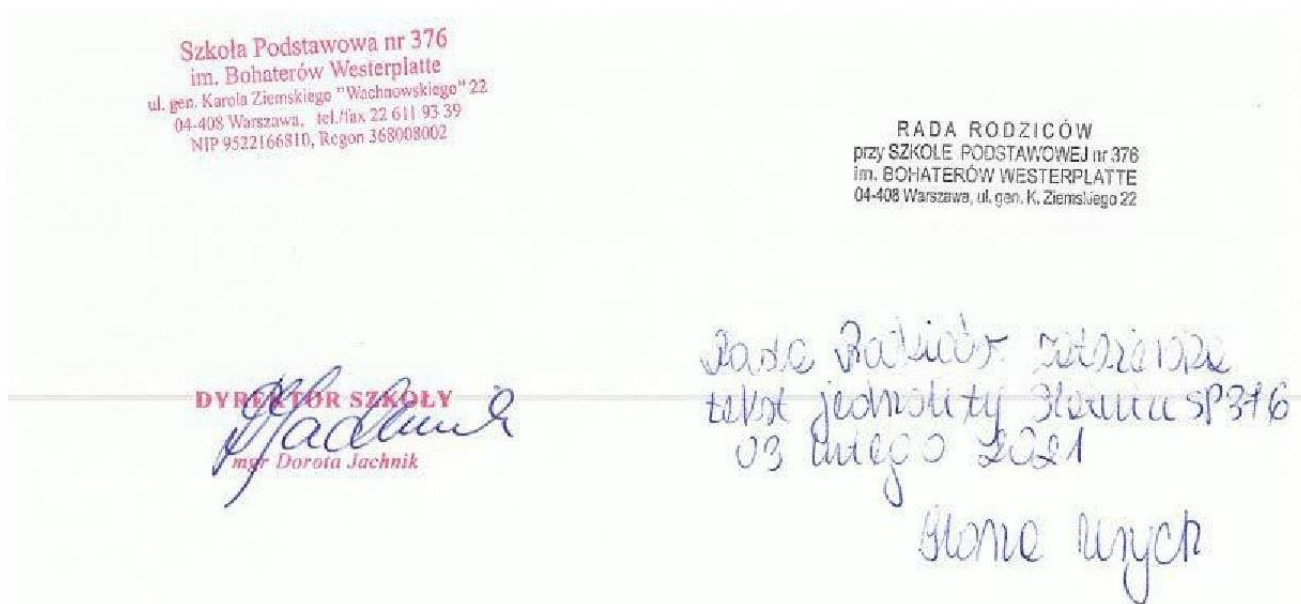 Szkoła Podstawowa nr 376
im. Bohaterów Westerplatte
ul. gen. Karola Ziemskiego "Wachnowskiego" 22
04-408 Warszawa, tel./fax 22 611 93 39
NIP 9522166810, Regon 368008002
RADA RODZICÓW
przy SZKOLE PODSTAWOWEJ nr 376
im. BOHATERÓW WESTERPLATTE
04-408 Warszawa, ul. gen. K. Ziemskiego 22
DYREKTOR SZKOŁY
mgr Dorota Jachnik
Rada Rodziców zatwierdza
tekst jednolity Statutu SP376
03 lutego 2021
Ilona